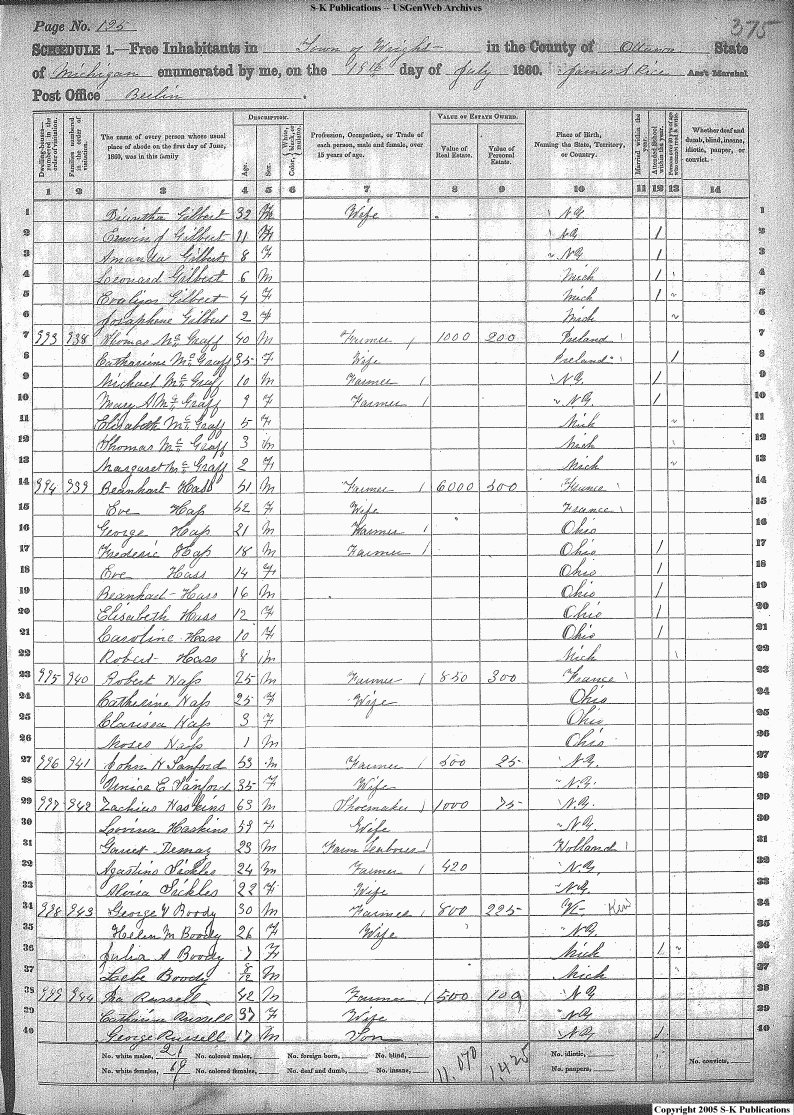 S-K Publications – USGenWeb Archives
Page No. 125
375
SCHEDULE 1.—Free Inhabitants in Town of Wright in the County of Ottawa State
of Michigan enumerated by me, on the 15th day of July 1860. James A Rice Ass't Marshal
Post Office Berlin
Dwelling-houses—numbered in the order of visitation.
Families numbered in the order of visitation.
The name of every person whose usual place of abode on the first day of June, 1860, was in this family
DESCRIPTION.
Age.
Sex.
Color, White, black, or mulatto.
Profession, Occupation, or Trade of each person, male and female, over 15 years of age.
VALUE OF ESTATE OWNED.
Value of Real Estate.
Value of Personal Estate.
Place of Birth, Naming the State, Territory, or Country.
Married within the year.
Attended School within the year.
Whether deaf and dumb, blind, insane, idiotic, pauper, or convict.
1 2 3 4 5 6 7 8 9 10 11 12 13 14
1 Gilbert 32 F Wife N.Y. 1
2 Gilbert 11 N.Y. 1 2
3 Amanda Gilbert 8 F N.Y. 1 3
4 Leonard Gilbert 6 M Mich 1 4
5 Evaline Gilbert 4 F Mich 1 5
6 Josaphene Gilbert 2 F Mich 6
7 993 938 Thomas McGraff 40 M Farmer 1000 200 Ireland 7
8 Catharine McGraff 35 F Wife Ireland 1 8
9 Michael McGraff 10 M Farmer N.Y. 1 9
10 Mary A McGraff 9 F Farmer N.Y. 1 10
11 Elisabeth McGraff 5 F Mich 11
12 Thomas McGraff 3 M Mich 12
13 Margaret McGraff 2 F Mich 13
14 994 939 Beanhart Hass 51 M Farmer 6000 500 France 14
15 Eve Hass 52 F Wife France 15
16 George Hass 21 M Farmer Ohio 16
17 Frederic Hass 18 M Farmer Ohio 1 17
18 Eve Hass 14 F Ohio 1 18
19 Beanhart Hass 16 M Ohio 1 19
20 Elisabeth Hass 12 F Ohio 1 20
21 Caroline Hass 10 F Ohio 1 21
22 Robert Hass 8 M Mich 22
23 995 940 Robert Nass 25 M Farmer 850 300 France 23
24 Catherine Nass 25 F Wife Ohio 24
25 Clarissa Nass 3 F Ohio 25
26 Moses Nass 1 M Ohio 26
27 996 941 John H Sanford 53 M Farmer 500 25 N.Y. 27
28 Unice E Sanford 35 F Wife N.Y. 28
29 997 942 Zachius Haskins 63 M Shoemaker 1000 75 N.Y. 29
30 Lovina Haskins 59 F Wife N.Y. 30
31 Garret 23 M Farm Labourer Holland 31
32 Agustins Sickles 24 M Farmer 420 N.Y. 32
33 Sickles 22 F Wife N.Y. 33
34 998 943 George V Boody 30 M Farmer 800 225 Vt 34
35 Helen M Boody 26 F Wife N.Y. 35
36 Julia A Boody 7 F Mich 1 36
37 Boody M Mich 37
38 999 944 Ira Russell 42 M Farmer 500 100 N.Y. 38
39 Catharine Russell 37 F Wife N.Y. 39
40 George Russell 17 M Son N.Y. 1 40
No. white males, 21 No. colored males, No. foreign born, No. blind, No. idiotic, No. convicts,
No. white females, 19 No. colored females, No. deaf and dumb, No. insane, 11,070 1,425 No. paupers,
Copyright 2005 S-K Publications